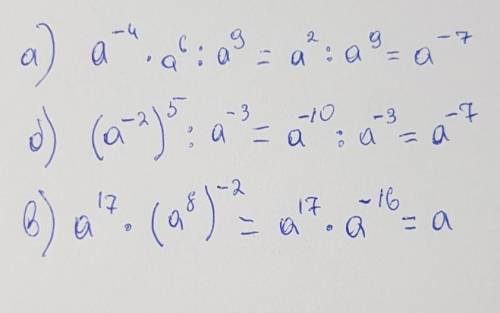 а) a⁻⁴ · a⁶ : a⁹ = a² : a⁹ = a⁻⁷
б) (a⁻²)⁵ : a⁻³ = a⁻¹⁰ : a⁻³ = a⁻⁷
в) a¹⁷ · (a⁸)⁻² = a¹⁷ · a⁻¹⁶ = a